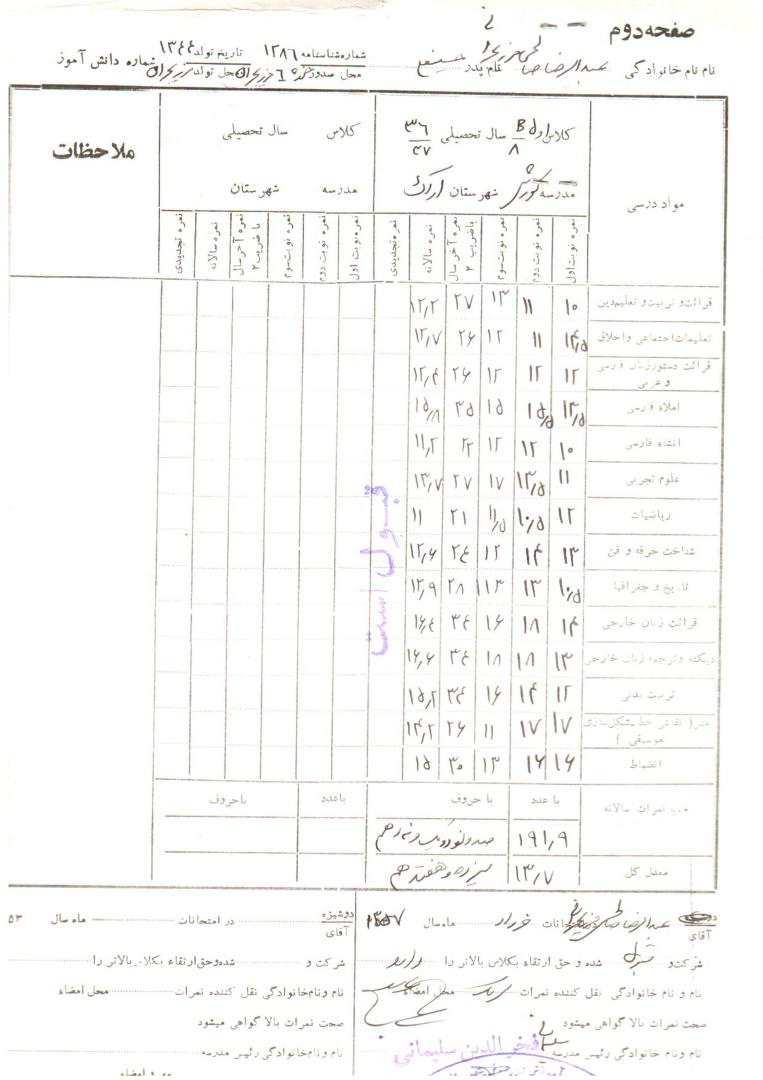 صفحه دوم
نام نام خانوادگی عبدالرضا نام پدر شماره شناسنامه ۱۲۸۶ تاریخ تولد ۱۳۴۴ شماره دانش آموز
محل صدور محل تولد
مواد درسی
کلاس اول سال تحصیلی ۳۶/۳۷
مدرسه کورش شهرستان اراک
کلاس سال تحصیلی
مدرسه شهرستان
ملاحظات
نمره نوبت اول نمره نوبت دوم نمره نوبت سوم نمره آخر سال با ضریب ۲ نمره سالانه نمره تجدیدی
نمره نوبت اول نمره نوبت دوم نمره نوبت سوم نمره آخر سال با ضریب ۲ نمره سالانه نمره تجدیدی
قرائت و تربیت و تعلیم دین ۱۰ ۱۱ ۱۳ ۲۷ ۱۲٫۲
تعلیمات اجتماعی و اخلاق ۱۴٫۵ ۱۱ ۱۲ ۲۶ ۱۲٫۷
قرائت دستور زبان فارسی و عربی ۱۲ ۱۲ ۱۲ ۲۶ ۱۲٫۴
املاء فارسی ۱۳٫۵ ۱۵٫۵ ۱۵ ۳۵ ۱۵٫۸
انشاء فارسی ۱۰ ۱۲ ۱۲ ۲۲ ۱۱٫۲
علوم تجربی ۱۱ ۱۳٫۵ ۱۷ ۲۷ ۱۳٫۷
ریاضیات ۱۲ ۱۰٫۵ ۱۱٫۵ ۲۱ ۱۱
شناخت حرفه و فن ۱۳ ۱۴ ۱۲ ۲۴ ۱۲٫۶
تاریخ و جغرافیا ۱۰٫۵ ۱۳ ۱۳ ۲۸ ۱۲٫۹
قرائت زبان خارجی ۱۴ ۱۸ ۱۶ ۳۴ ۱۶٫۴
دیکته و ترجمه زبان خارجی ۱۳ ۱۸ ۱۸ ۳۴ ۱۶٫۶
تربیت بدنی ۱۲ ۱۴ ۱۶ ۳۴ ۱۵٫۲
هنر ( نقاشی خط مشکل سازی موسیقی ) ۱۷ ۱۷ ۱۱ ۲۶ ۱۴٫۲
انضباط ۱۶ ۱۶ ۱۳ ۳۰ ۱۵
قبول است
جمع نمرات سالانه با عدد با حروف با عدد با حروف
۱۹۱٫۹ صد و نود و یک و نه دهم
معدل کل ۱۳٫۷ سیزده و هفت دهم
آقای عبدالرضا امتحانات خرداد ماه سال ۱۳۵۷
شرکت و قبول شده و حق ارتقاء بکلاس بالاتر را دارد
نام و نام خانوادگی نقل کننده نمرات محل امضاء
صحت نمرات بالا گواهی میشود
نام و نام خانوادگی رئیس مدرسه
فخرالدین سلیمانی
دوشیزه
آقای در امتحانات ماه سال ۵۳
شرکت و شده و حق ارتقاء بکلاس بالاتر را
نام و نام خانوادگی نقل کننده نمرات محل امضاء
صحت نمرات بالا گواهی میشود
نام و نام خانوادگی رئیس مدرسه